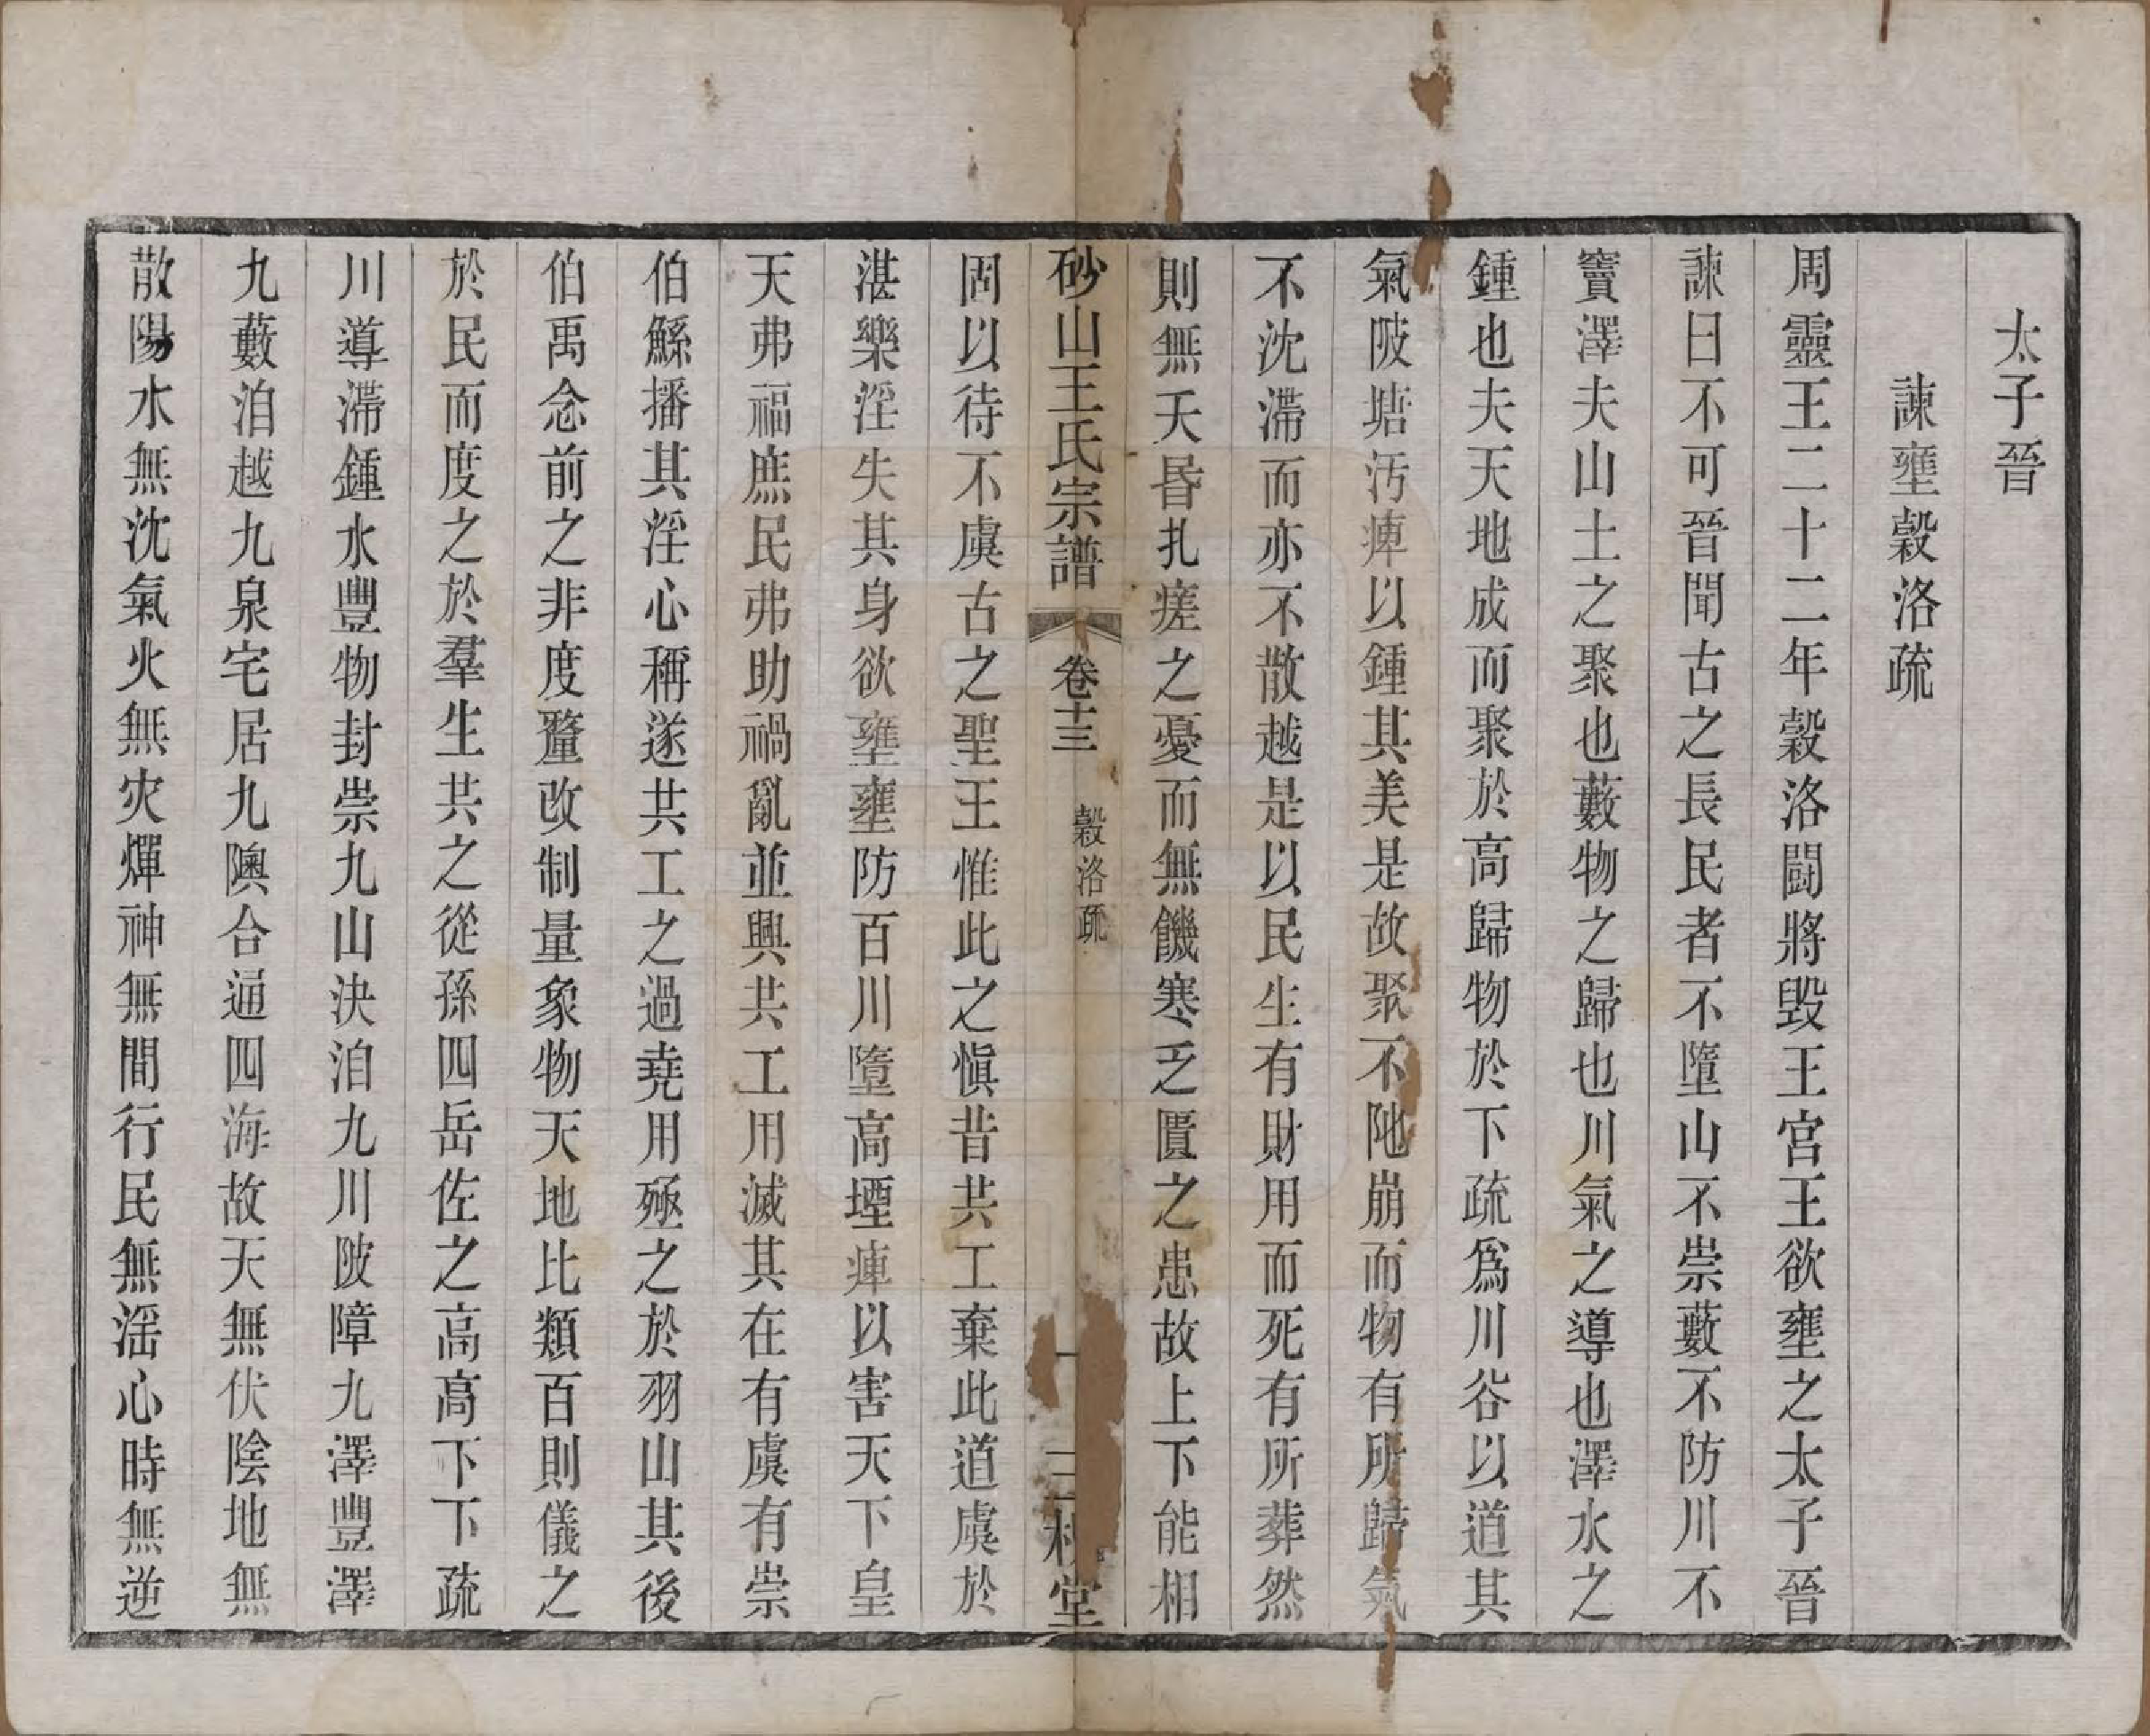 太子晉
諫壅穀洛疏
周靈王二十二年穀洛鬪將毀王宮王欲壅之太子晉
諫曰不可晉聞古之長民者不墮山不崇藪不防川不
竇澤夫山土之聚也藪物之歸也川氣之導也澤水之
鍾也夫天地成而聚於高歸物於下疏爲川谷以道其
氣陂塘汚庳以鍾其美是故聚不阤崩而物有所歸氣
不沈滯而亦不散越是以民生有財用而死有所葬然
則無夭昏扎瘥之憂而無饑寒乏匱之患故上下能相
砂山王氏宗譜 卷十三 穀洛疏 一 三槐堂
固以待不虞古之聖王惟此之愼昔共工棄此道虞於
湛樂淫失其身欲壅壅防百川墮高堙庳以害天下皇
天弗福庶民弗助禍亂並興共工用滅其在有虞有崇
伯鯀播其淫心稱遂共工之過堯用殛之於羽山其後
伯禹念前之非度釐改制量象物天地比類百則儀之
於民而度之於羣生共之從孫四岳佐之高高下下疏
川導滯鍾水豐物封崇九山決汨九川陂障九澤豐澤
九藪汨越九泉宅居九隩合通四海故天無伏陰地無
散陽水無沈氣火無灾燀神無間行民無滛心時無逆